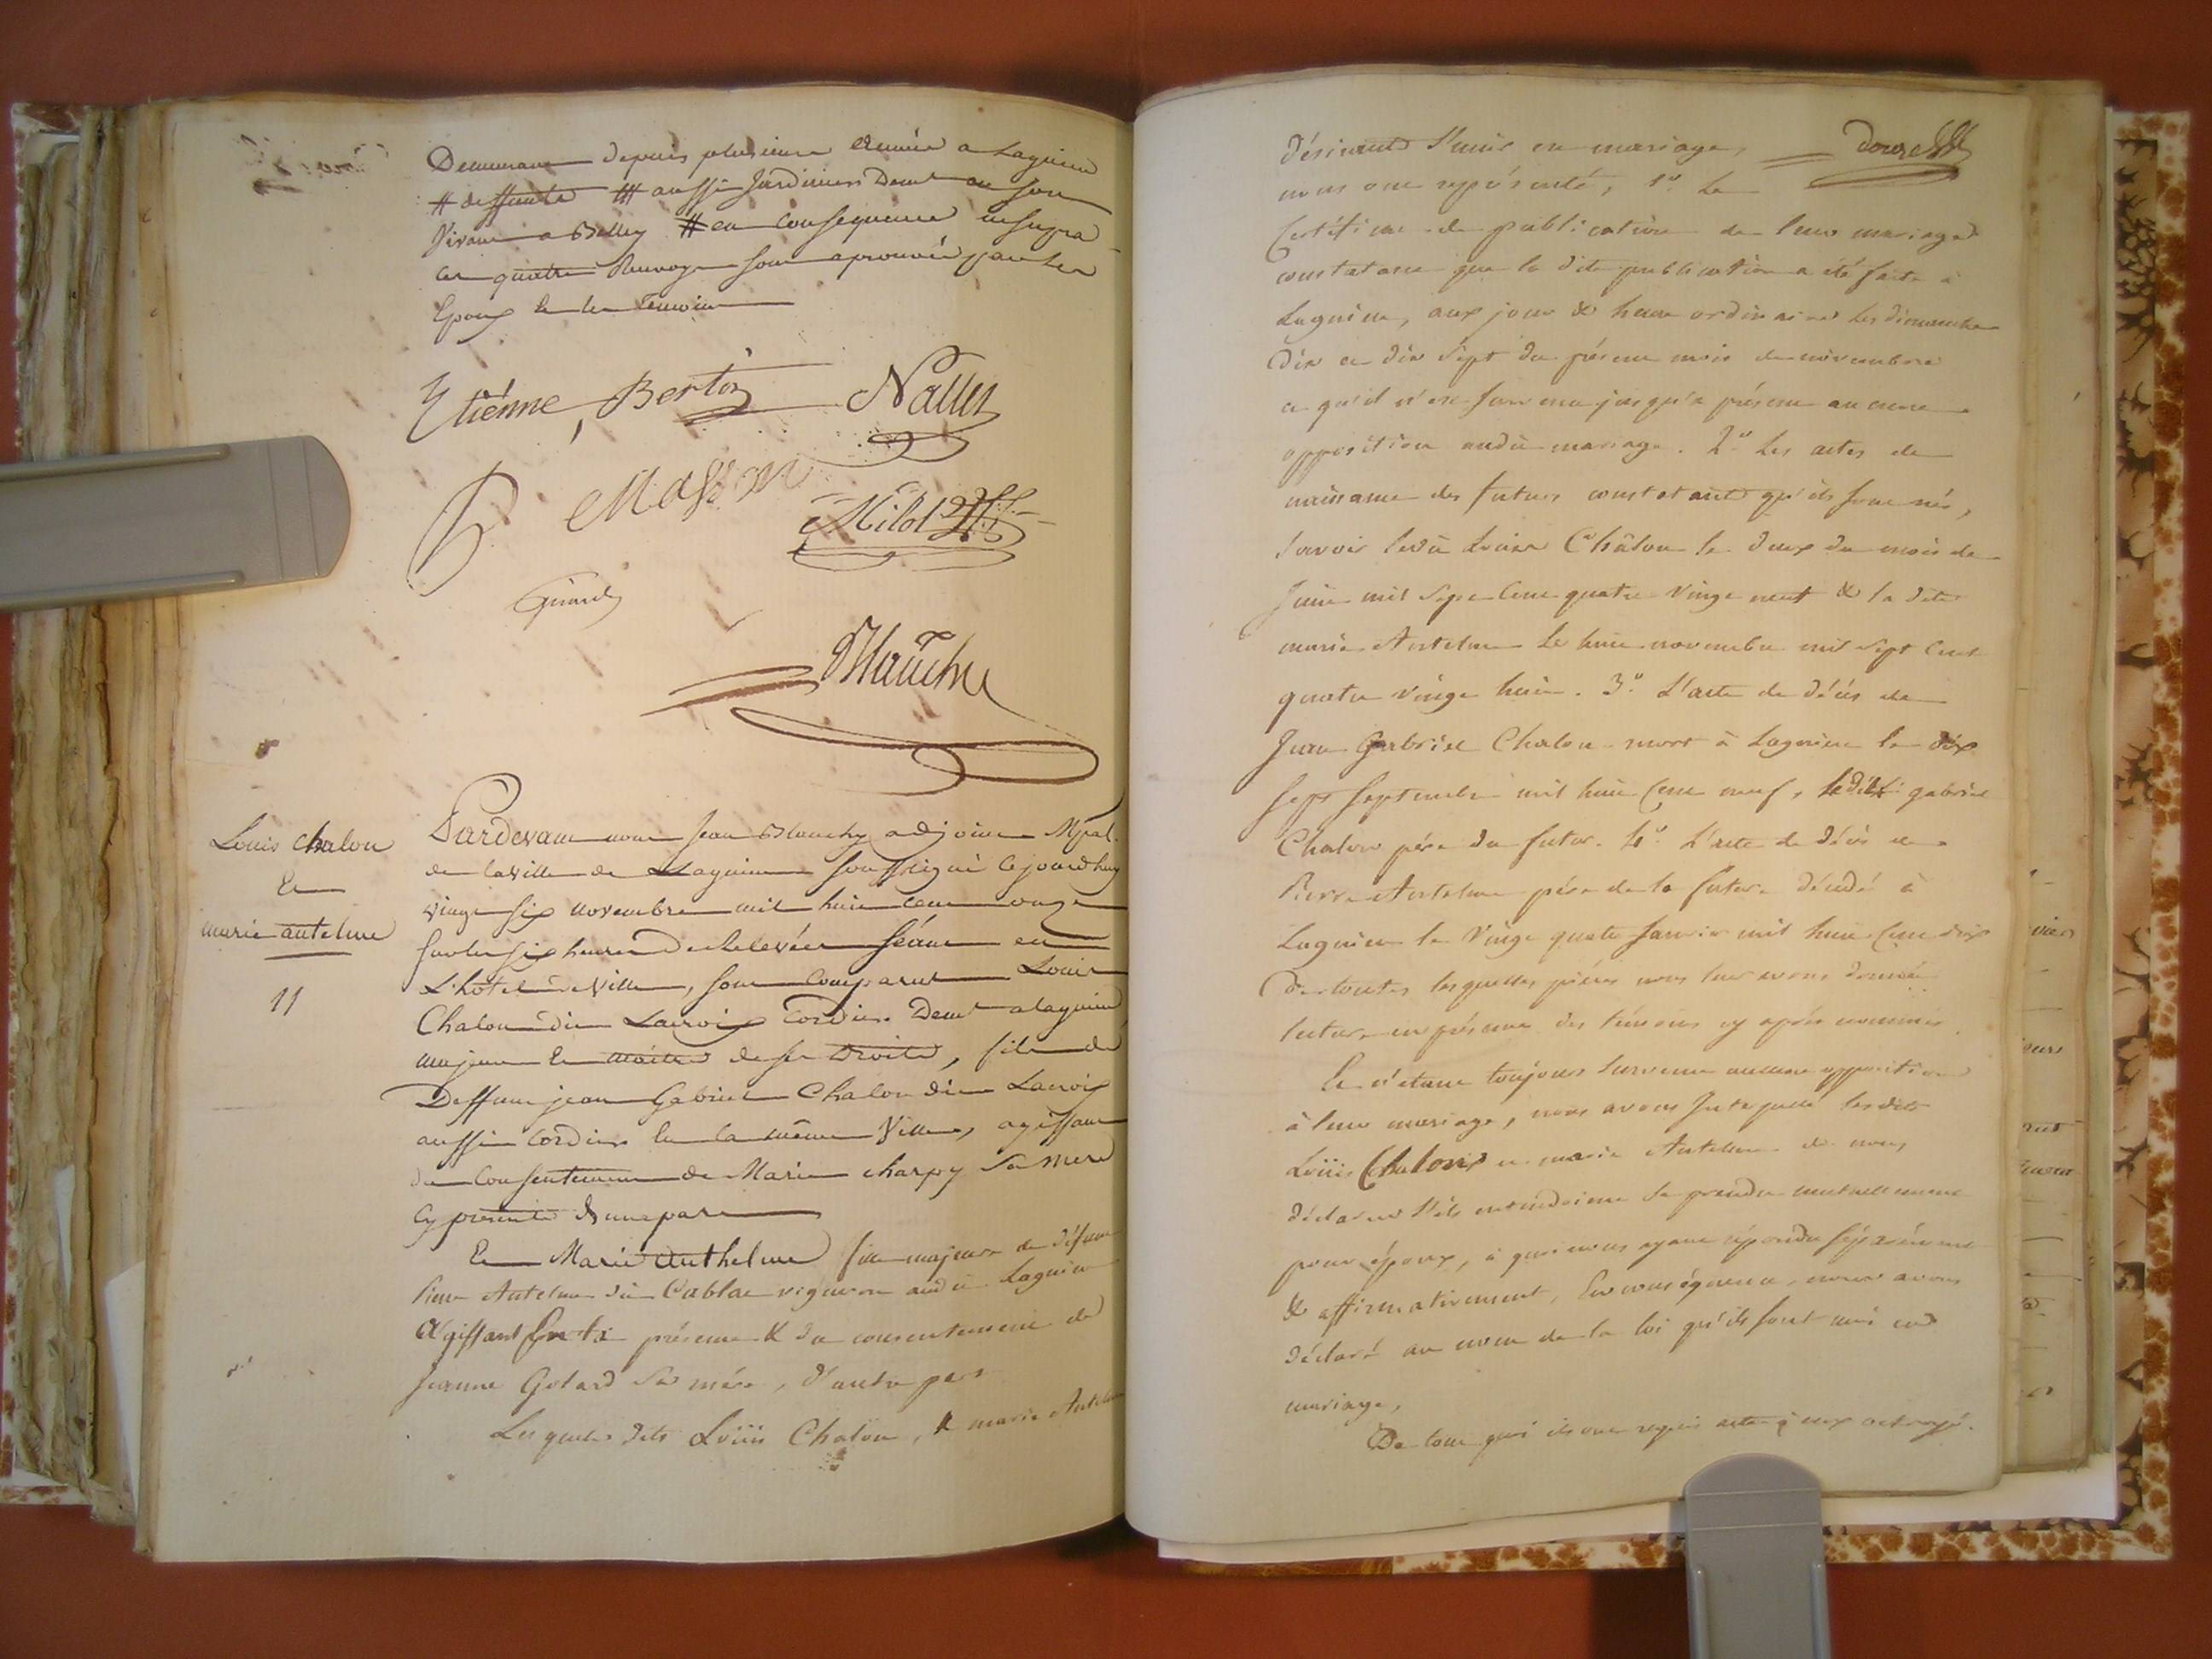 Demeurant depuis plusieurs année a Lagnieu
# deffunte ## aussi Jardinier Demt au son
Vivant a Belley # en consequence
ces quatre Renvoys sont aprouvés par les
Epoux et les temoins
Etiénne Berton Nallet
P Masson
Milot
Girard
Blanchy
Louis Chalou
Et
marie antelme
11
Pardevant nous Jean Blanchy adjoint Mpal.
de la Ville de Lagnieu soussigné cejourdhuy
vingt six novembre mil huit cent onze
sur les six heures De Relevée séant en
L'hôtel de Ville, sont comparut Louis
Chalou dit Lacroix Cordier Demt a lagnieu
majeur et maitre de ses Droits, fils de
Deffunt jean Gabriel Chalou dit Lacroix
aussi Cordier en la même Ville, agissant
du Consentement de Marie charpy sa mere
Cy presente d'une part
Et Marie Anthelme fille majeure de défunt
Pierre Antelme dit Cablat vigneron audit Lagnieu
Agissant en la présence & du consentement de
Jeanne Golard sa mère, d'autre part
Les quels dits Loüis Chalou, & marie Antelme
désirants s'unir en mariage, douze
nous ont représenté, 1°. Le
Certificat de publication de leur mariage
constatant que la dite publication a été faite à
Lagnieu, aux jour & heure ordinaires les dimanches
Dix et dix sept du présent mois de novembre
et qu'il n'est survenu jusqu'à présent aucune
opposition audit mariage. 2° Les actes de
naissance des futurs constatant qu'ils sont nés,
savoir ledit Louis Châlou le deux du mois de
Juin mil sept cent quatre vingt neuf & la dite
marie Antelme le huit novembre mil sept cent
quatre vingt huit. 3° L'acte de décès de
Jean Gabriel Chalou mort à Lagnieu le dix
sept septembre mil huit cent neuf, ledit gabriel
Chalou père du futur. 4° L'acte de décès de
Pierre Antelme père de la future décédé à
Lagnieu le Vingt quatre Janvier mil huit cent dix
De toutes lesquelles pièces nous leur avons donné
lecture en présence des témoins cy après nommés.
Et n'étant toujours survenu aucune opposition
à leur mariage, nous avons Interpellé lesdits
Loüis Chalou et marie Antelme de nous
déclarer s'ils entendoient se prendre mutuellement
pour époux, à quoi nous ayant répondu séparément
& affirmativement, En conséquence, nous avons
déclaré au nom de la loi qu'ils sont unis en
mariage,
De tout quoi ils ont requis acte à eux octroyé.